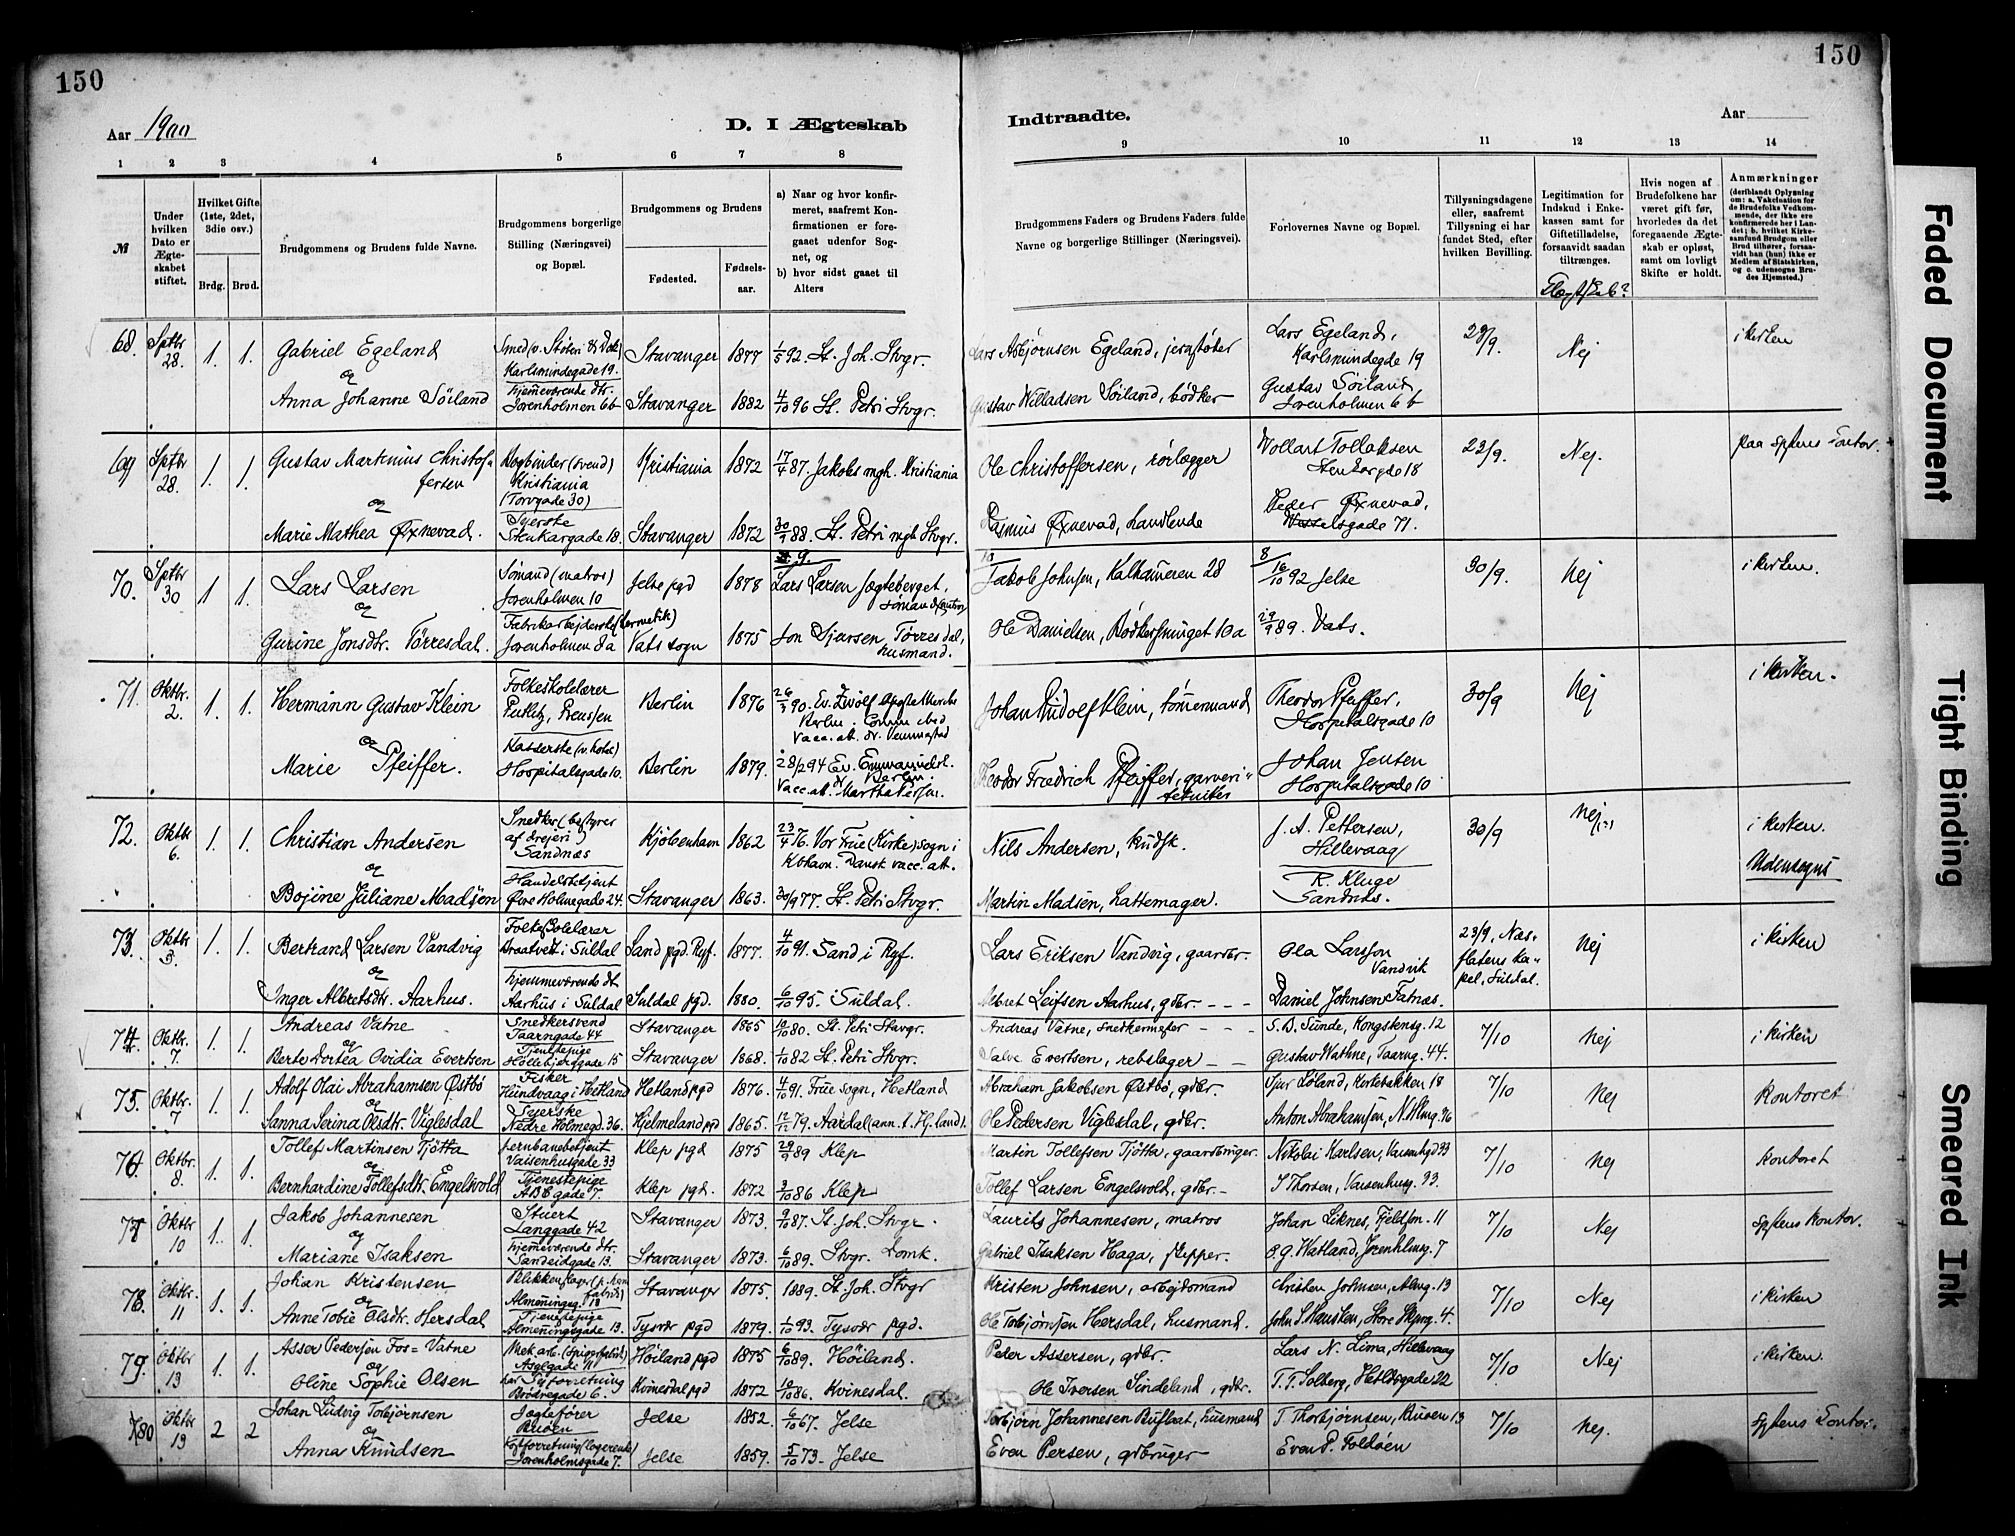 150
150
Aar 1900
D. I Ægteskab
Indtraadte.
Aar
1 2 3 4 5 6 7 8 9 10 11 12 13 14
№
Under hvilken Dato er Ægteskabet stiftet.
Hvilket Gifte (1ste, 2det, 3die osv.)
Brdg. Brud.
Brudgommens og Brudens fulde Navne.
Brudgommens borgerlige Stilling (Næringsvei) og Bopæl.
Brudgommens og Brudens
Fødested. Fødselsaar.
a) Naar og hvor konfirmeret, saafremt Konfirmationen er foregaaet udenfor Sognet, og
b) hvor sidst gaaet til Alters
Brudgommens Faders og Brudens Faders fulde Navne og borgerlige Stillinger (Næringsvei).
Forlovernes Navne og Bopæl.
Tillysningsdagene eller, saafremt Tillysning ei har fundet Sted, efter hvilken Bevilling.
Legitimation for Indskud i Enkekassen samt for Giftetilladelse, forsaavidt saadan tiltrænges.
Slægtskab?
Hvis nogen af Brudefolkene har været gift før, hvorledes da det foregaaende Ægteskab er opløst, samt om lovligt Skifte er holdt.
Anmærkninger
(deriblandt Oplysning om: a. Vakcination for de Brudefolks Vedkommende, der ikke ere konfirmerede her i Landet; b. hvilket Kirkesamfund Brudgom eller Brud tilhører, forsaavidt han (hun) ikke er Medlem af Statskirken, og c. udensogns Brudes Hjemsted.)
68. Sptbr 28. 1. 1. Gabriel Egeland
Karlsmindegade 19. Stavanger 1877 1/5 92. St. Joh. Stvgr.
Lars Asbjørnsen Egeland, jernstøber
Lars Egeland, Karlsmindegde 19
23/9. Nej i kirken
og
Anna Johanne Söiland
hjemmeværende dtr. Jorenholmen 6b Stavanger 1882 4/10 96 St. Petri Stvgr.
Gustav Willadsen Söiland, bødker
Gustav Söiland Jorenholmen 6 b
69 Sptbr 28. 1. 1. Gustav Martinius Christoffersen
Bogbinder (svend) Kristiania (Torvgade 30) Kristiania 1872 17/4 87. Jakobs mgh. Kristiania
Ole Christoffersen, rörlægger
Stenkargde 18
23/9. Nej.
og
Marie Mathea Øxnevad.
Syerske Stenkargade 18. Stavanger 1872 30/9 88. St. Petri mgh Stvgr.
Rasmus Øxnevad, handlende
Peder Øxnevad, Wesselsgade 71.
70. Sptbr 30 1 1. Lars Larsen
Sömand (matros) Jorenholmen 10 Jelse pgd 1878
Jakob Johnsen, Kalhameren 28
16/10 92 Jelse
30/9. Nej i kirken.
og
Gurine Jonsdtr. Törresdal.
Jorenholmen 8a Vats sogn 1875 Jon Sjursen Törresdal, husmand.
Ole Danielsen, Bödkersmuget 10a
29/9 89. Vats.
71. Oktbr. 2. 1. 1. Hermann Gustav Klein
Folkeskolelærer Putlitz, Preussen Berlin 1876
Johan Rudolf Klein, tömmermand
Theodor Pfeiffer, Hospitalsgade 10
30/9 Nej i kirken.
og
Marie Pfeiffer.
Hospitalsgade 10. Berlin 1879.
Theodor Friedrich Pfeiffer, garveritekniker
Johan Jensen Hospitalsgade 10
72. Oktbr 6. 1. 1. Christian Andersen
Snedker (bestyrer af drejeri) Sandnæs Kjöbenhavn 1862 23/4 76. Vor Frue (Kirke) sogn i Kbhavn. Dansk vacc. att.
Nils Andersen, kudsk.
J. A. Pettersen, Hillevaag
30/9 Nej i kirken.
Udensogns
og
Bojine Juliane Madsen
Handelsbetjent Øvre Holmegade 24. Stavanger 1863. 30/9 77. St. Petri Stvgr.
Martin Madsen, hattemager.
R. Kluge Sandnes.
73. Oktbr 3. 1. 1. Bertrand Larsen Vandvig
Folkeskolelærer Braatveit i Suldal Sand pgd. Ryf. 1877. 4/10 91. Sand i Ryf.
Lars Eriksen Vandvig, gaardbr.
Ola Larsson Vandvik
23/9. Næsflatens kapel, Suldal. Nej i kirken
og
Inger Albretsdtr. Aarhus.
hjemmeværende dt Aarhus i Suldal Suldal pgd. 1880. 6/10 95. i Suldal.
Albret Leifsen Aarhus, gdbr.
Daniel Johnsen Fatnæs.
74. Oktbr. 7. 1. 1. Andreas Vatne
Snedkersvend Taarngade 44 Stavanger 1865 10/10 80. St. Petri Stavgr.
Andreas Vatne, snedkermester
S. B. Sunde, Kongstensg. 12
7/10 Nej i kirken
og
Berte Dortea Ovidia Evertsen
Tjenestepige Stavanger 1868. 1/10 82 St. Petri Stvgr.
Salve Evertsen, rebslager
Gustav Wathne, Taarng. 44.
75. Oktbr. 7 1. 1. Adolf Olai Abrahamsen Østbö
Fisker Hundvaag i Hetland Hetland pgd 1876. 4/10 91. Frue sogn, Hetland
Abraham Jakobsen Østbö, gdbr.
Sjur Löland, Kortebakken 18
7/10 Nej Kontoret
og
Sanna Serina Olsdtr. Viglesdal
Syerske Nedre Holmegd. 36. Hjelmeland pgd 1865. 12/10 79. Aardal (ann. t. Hj.land).
Ole Pedersen Viglesdal, gdbr.
Anton Abrahamsen, N. Hlmg. 36
76 Oktbr. 8. 1. 1. Tollef Martinsen Tjötta
Jernbanebetjent Vaisenhusgade 33 Klep pgd 1875 29/9 89 Klep
Martin Tollefsen Tjötta, gaardbruger.
Nikolai Karlsen, Vaisenhgd 33
7/10 Nej Kontoret
og
Bernhardine Tollefsdtr. Engelsvold
Tjenestepige ABCgade 7. Klep pgd. 1872 3/10 86 Klep
Tollef Larsen Engelsvold, gdbr.
T Thorsen, Vaisenhusg. 33.
77 Oktbr 10 1. 1. Jakob Johannesen
Stuert Langgade 42 Stavanger 1873. 9/10 87. St. Joh. Stvgr.
Laurits Johannesen, matros
Johan Liknes, Fjeldsm. 11
7/10 Nej Spstens kontor.
og
Mariane Isaksen
hjemmeværende dtr. Sandeidgade 13. Stavanger 1873. 6/10 89. Stvgr. Domk.
Gabriel Isaksen Haga, skipper.
O. G. Hatland, Jorenhlmsg. 7
78. Oktbr. 11 1. 1. Johan Kristensen
Almeningsg. 13 Stavanger 1875. 1889. St. Joh. Stvgr
Kristen Johnsen, arbejdsmand
Christen Johnsen, Almg. 13
7/10 Nej i kirken
og
Anne Tobie Olsdtr. Hersdal
Tjenestepige Almeningsgade 13. Tysvær pgd 1879. 1/10 93. Tysvær pgd.
Ole Torbjörnsen Hersdal, husmand.
7/10
79. Oktbr 13 1. 1. Asser Pedersen Fos-Vatne
Höiland pgd 1875 6/10 89. Höiland.
Peder Assersen, gdbr.
Lars N. Lima, Hillevaag
7/10 Nej i kirken.
og
Oline Sophie Olsen
Brödregade 6. Kvinesdal pgd 1872 10/10 86. Kvinesdal.
Ole Iversen Sindeland, gdbr.
T. T. Solberg, Hetldsgade 22
80 Oktbr 13 2 2 Johan Ludvig Torbjörnsen
Jagtefører Buöen Jelse 1852. 6/10 67. Jelse
Torbjörn Johannesen Buflaat, husmand
T. Thorbjørnsen, Buöen 13
7/10 Nej. Spstens kontor.
og
Anna Knudsen
Jorenholmsgade 7. Jelse 1859. 5/10 73. Jelse
Even Persen, gdbruger
Even P. Foldöen
Faded Document
Tight Binding
Smeared Ink